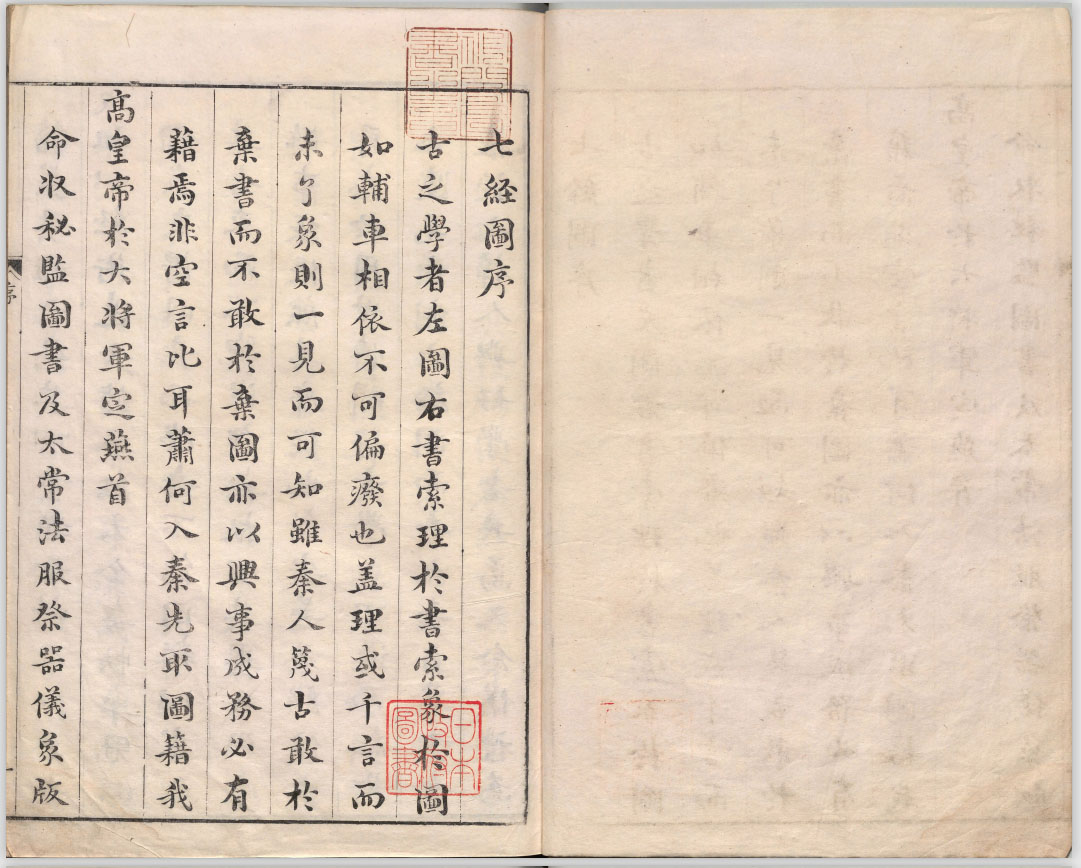 七經圖序
古之學者左圖右書索理於書索象於圖
如輔車相依不可偏癈也盖理或千言而
未了象則一見而可知雖秦人篾古敢於
棄書而不敢於棄圖亦以興事成務必有
藉焉非空言比耳蕭何入秦先取圖籍我
高皇帝於大將軍定燕首
命収秘監圖書及太常法服祭器儀象版
序
日本政府圖書